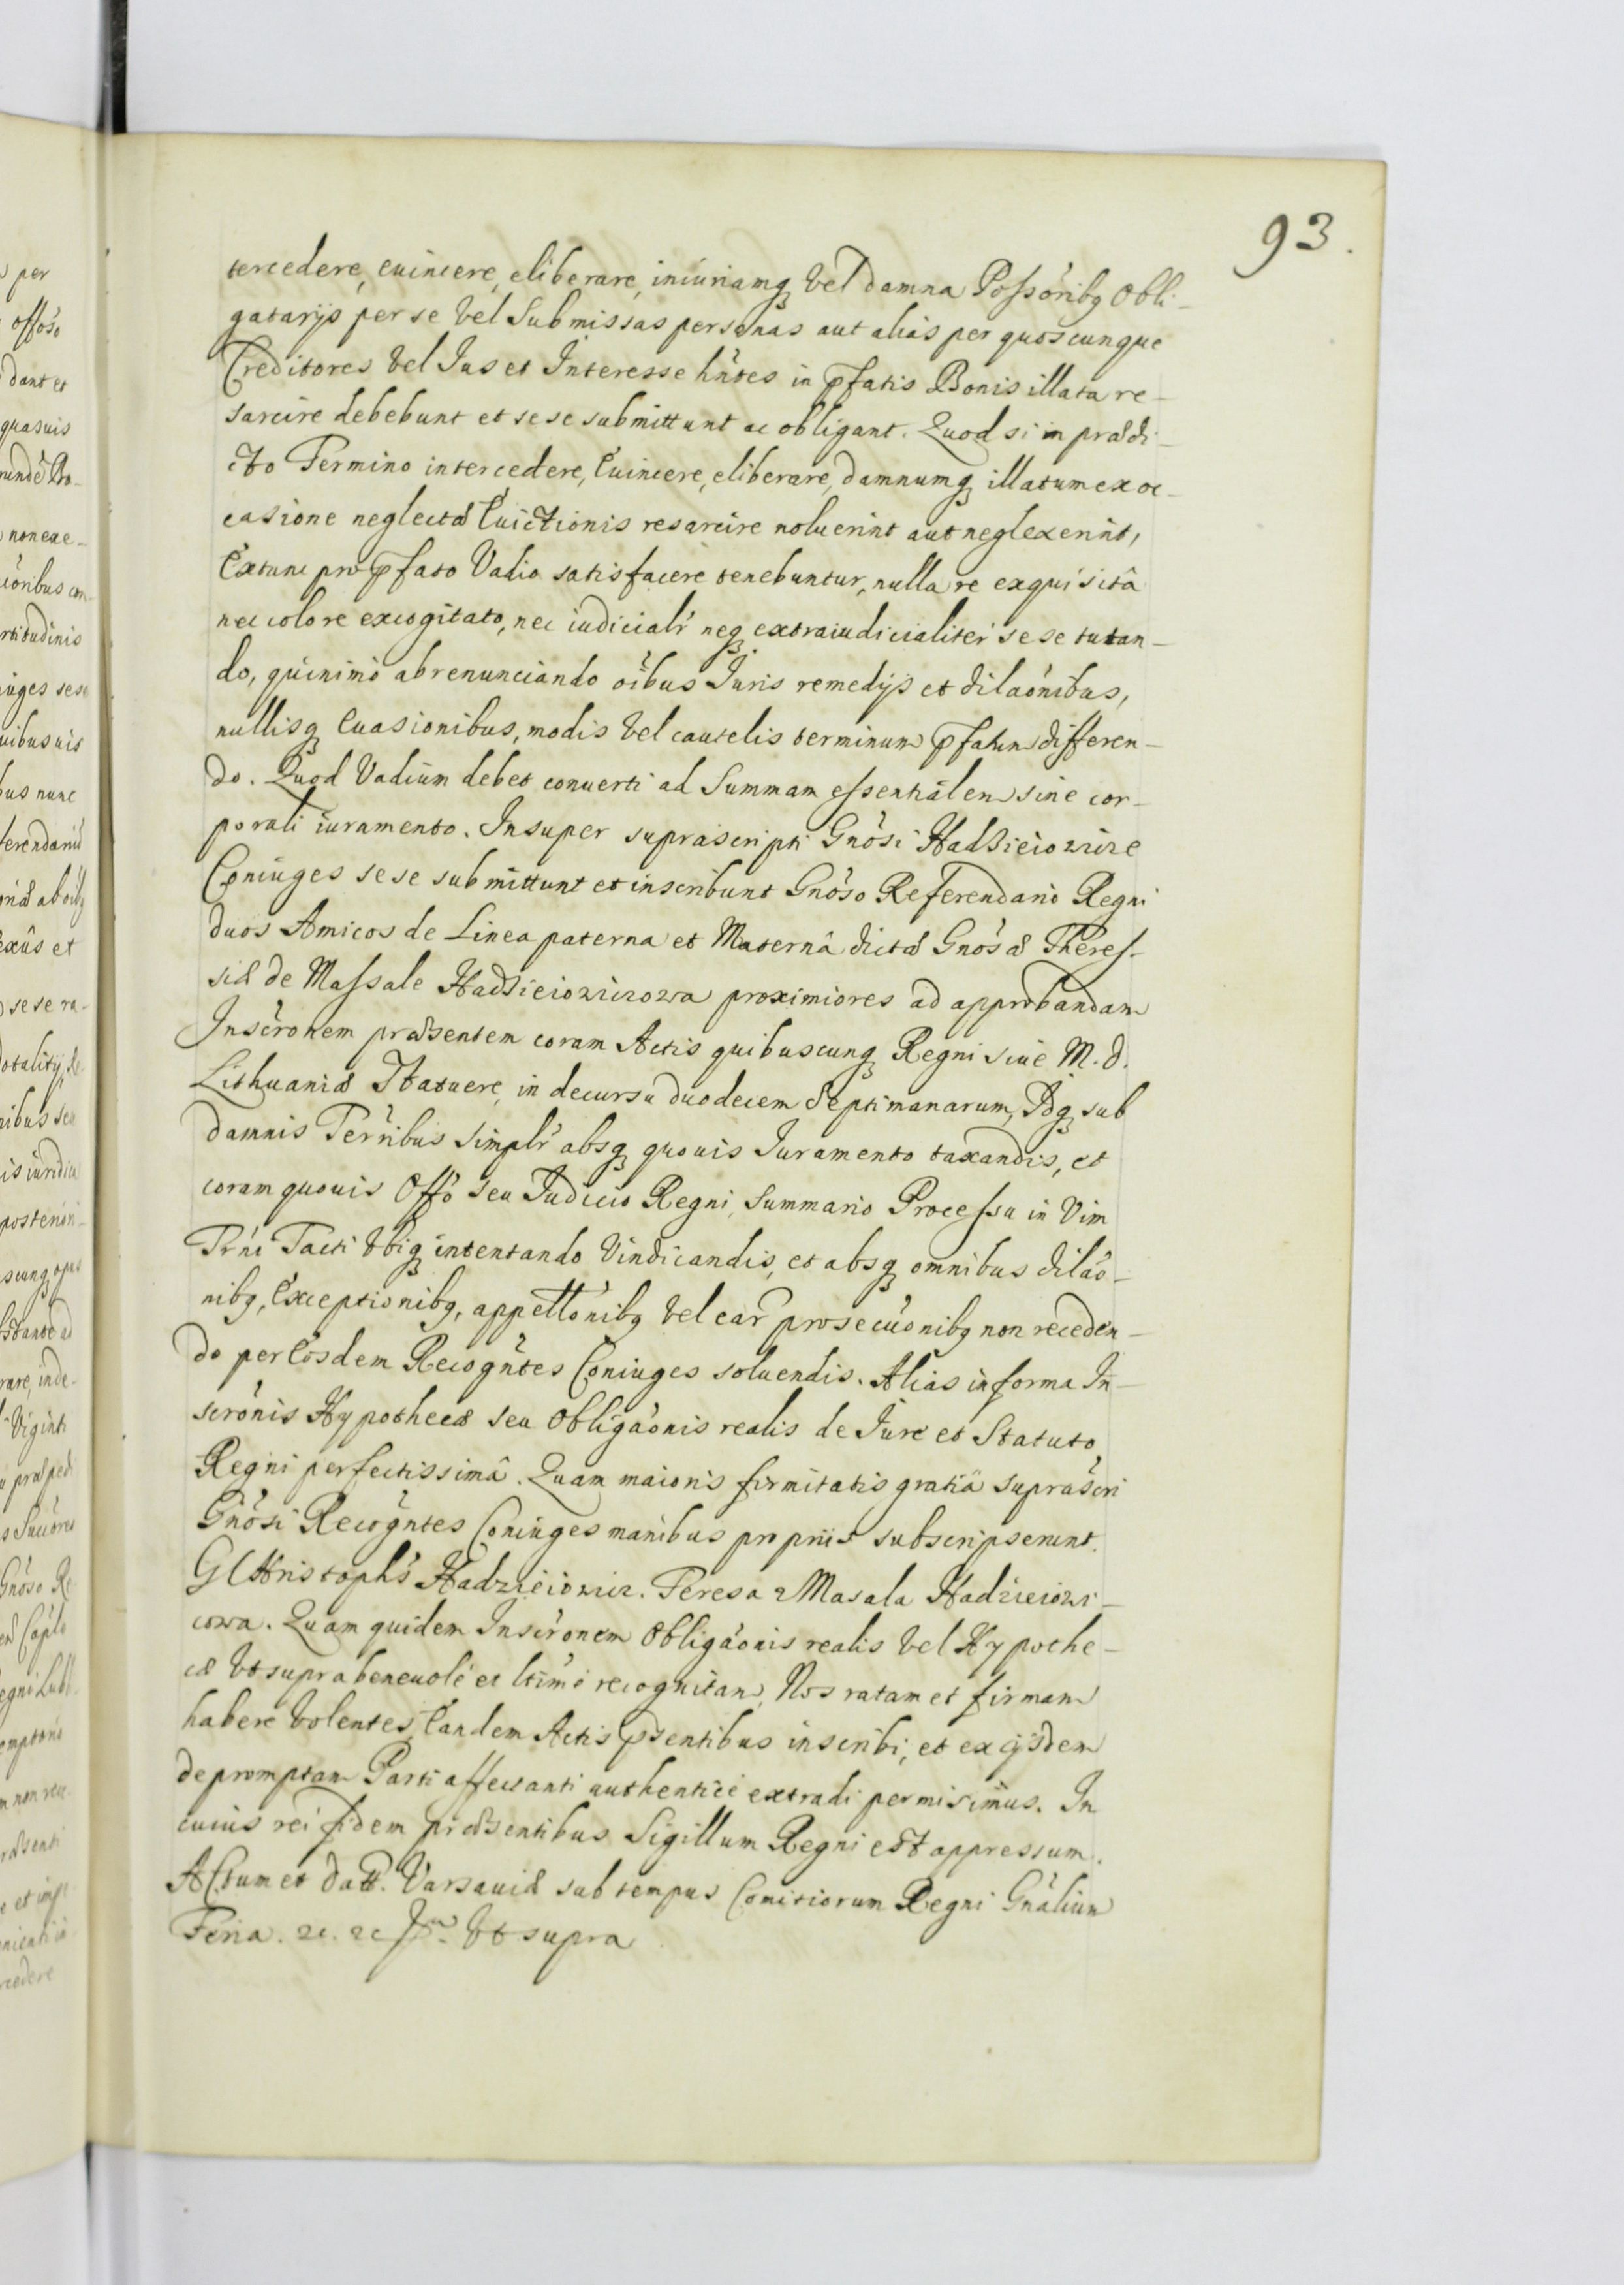 93.
tercedere, euincere, eliberare, iniuriamq vel damna Possoribq Obli-
gatarijs per se vel Submissas personas aut alias per quoscunque
Creditores vel Ius et Interesse hntes in pfatis Bonis illata re-
sarcire debebunt et sese submittunt ac obligant. Quod si in prædi-
cto Termino intercedere, Euincere, eliberare, damnumq illatum ex oc-
casione neglectæ Euictionis resarcire noluerint aut neglexerint,
Extunc pro pfato Vadio satisfacere tenebuntur, nulla re exquisitâ
nec colore excogitato, nec iudicialr neq extraiudicialiter sese tutan-
do, quinimò abrenunciando oibus Iuris remedijs et dilaonibus,
nullisq Euasionibus, modis vel cautelis terminum pfatum differen-
do. Quod Vadium debet conuerti ad Summam essentialem sine cor-
porali iuramento. Insuper suprascripti Gnosi Hadzieiowicze
Coniuges sese submittunt et inscribunt Gnoso Referendario Regni
duos Amicos de Linea paterna et Maternâ dictæ Gnosæ Theres-
siæ de Massale Hadzieiowiczowa proximiores ad approbandam
Inscronem præsentem coram Actis quibuscunq Regni siue M. d.
Lithuaniæ Statuere, in decursu duodecem Septimanarum, Idq sub
damnis Terribus simplr absq quouis Iuramento taxandis, et
coram quouis Offo seu Iudicio Regni, Summario Processu in Vim
Prni Pacti Vbiq intentando Vindicandis, et absq omnibus dilao-
nibq, Exceptionibq, appellonibq vel ear prosecuonibq non receden-
do per Eosdem Recogntes Coniuges soluendis. Alias in forma In-
scronis Hypothecæ seu Obligaonis realis de Iure et Statuto
Regni perfectissimâ. Quam maioris firmitatis gratiâ suprascri
Gnosi Recogntes Coniuges manibus propriis subscripserunt.
G CHristophs Hadzieiowicz. Teresa z Masala Hadzieiowi-
cowa. Quam quidem Inscronem Obligaonis realis vel Hypothe-
cæ Vt supra beneuolè et ltimè recognitam, Nos ratam et firmam
habere Volentes, Eandem Actis psentibus inscribi, et ex ijsdem
depromptam Parti affectanti authenticè extradi permisimus. In
cuius rei fidem præsentibus Sigillum Regni est appressum.
ACtum et datt. Varsauiæ sub tempus Comitiorum Regni Gnalium
Feria. 2c. 2c Vt supra